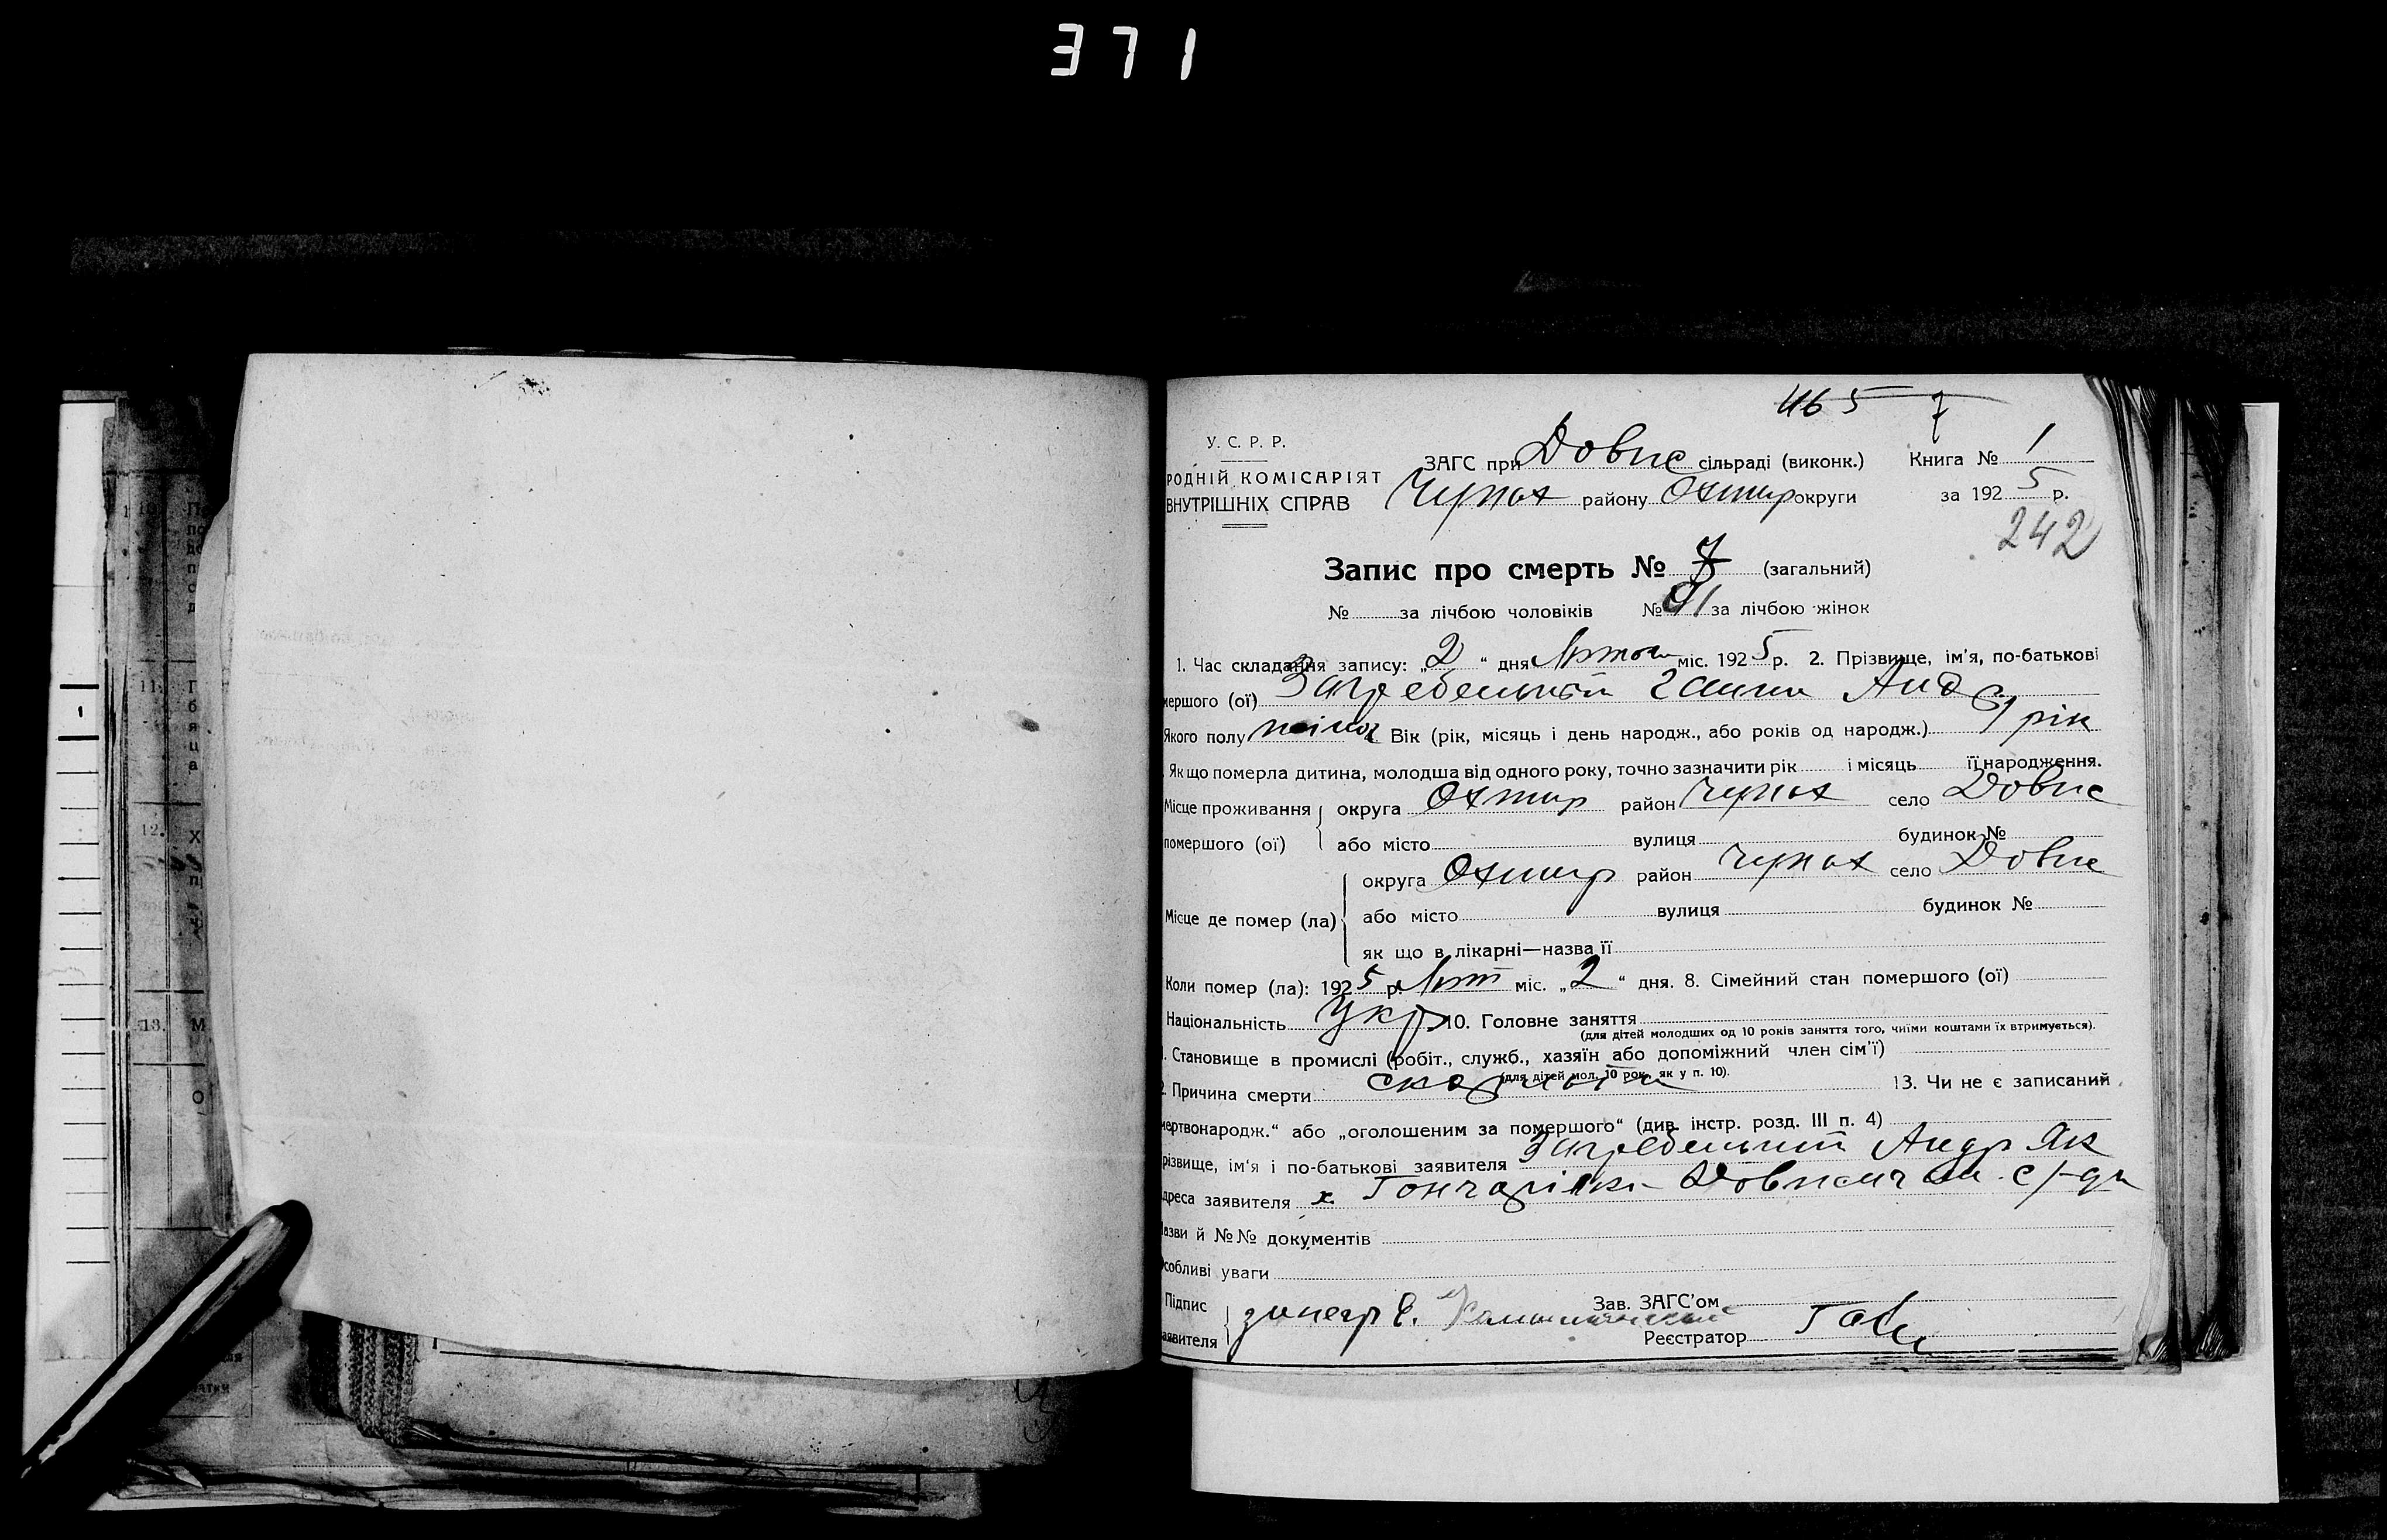 371
465 7
У. С. Р. Р.
РОДНІЙ КОМІСАРІЯТ
ВНУТРІШНІХ СПРАВ
ЗАГС при Довж сільраді (виконк.) Книга № 1
Чупах району Охтир округи за 1925 р.
242
Запис про смерть № 7 (загальний)
№ за лічбою чоловіків № за лічбою жінок
1. Час складання запису: „2“ дня Лютого міс. 1925 р. 2. Прізвище, ім'я, по-батькові
мершого (ої) Загребельний Ганна Анд
Якого полу жіноч Вік (рік, місяць і день народж., або років од народж.) 1 рік
Як що померла дитина, молодша від одного року, точно зазначити рік і місяць її народження.
Місце проживання округа Охтир район Чупах село Довж
помершого (ої) або місто вулиця будинок №
округа Охтир район Чупах село Довж
Місце де помер (ла) або місто вулиця будинок №
як що в лікарні—назва її
Коли помер (ла): 1925 р. Лют міс. „2“ дня. 8. Сімейний стан помершого (ої)
Національність Укр 10. Головне заняття
(для дітей молодших од 10 років заняття того, чиїми коштами їх втримується).
. Становище в промислі (робіт., служб., хазяїн або допоміжний член сім'ї)
(для дітей мол. 10 рок., як у п. 10).
2. Причина смерти скарлатин 13. Чи не є записаний
мертвонародж.“ або „оголошеним за помершого“ (див. інстр. розд. III п. 4)
різвище, ім'я і по-батькові заявителя Загребельний Андр Як
дреса заявителя х. Гончарівка
азви й №№ документів
собливі уваги
Підпис
аявителя
Зав. ЗАГС'ом
Реєстратор
10.
11.
12.
13.